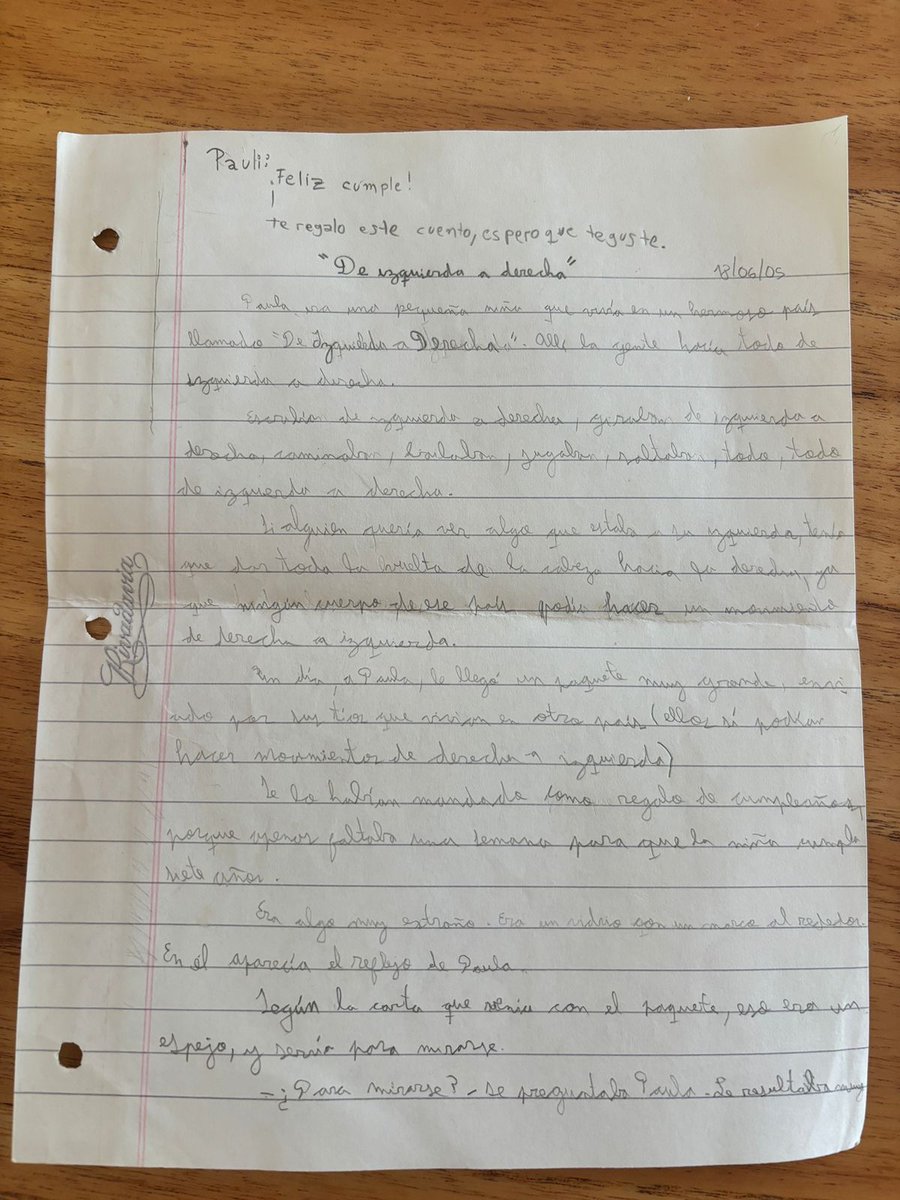 Pauli:
¡Feliz cumple!
te regalo este cuento, espero que te guste.
"De izquierda a derecha" 13/06/05
Paula era una pequeña niña que vivía en un hermoso país
llamado "De Izquierda a Derecha". Allí la gente hacía todo de
izquierda a derecha.
Escribían de izquierda a derecha, giraban de izquierda a
derecha, caminaban, bailaban, jugaban, saltaban, todo, todo
de izquierda a derecha.
Si alguien quería ver algo que estaba a su izquierda, tenía
que dar toda la vuelta de la cabeza hacia la derecha, ya
que ningún cuerpo de ese país podía hacer un movimiento
de derecha a izquierda.
Un día, a Paula, le llegó un paquete muy grande, envi
ado por sus tíos que vivían en otro país (ellos sí podían
hacer movimientos de derecha a izquierda)
Se lo habían mandado como regalo de cumpleaños,
porque apenas faltaba una semana para que la niña cumpla
siete años.
Era algo muy extraño. Era un vidrio con un marco al rededor.
En él aparecía el reflejo de Paula.
Según la carta que venía con el paquete, eso era un
espejo, y servía para mirarse.
-¿Para mirarse? - se preguntaba Paula. Le resultaba muy
Rivadavia